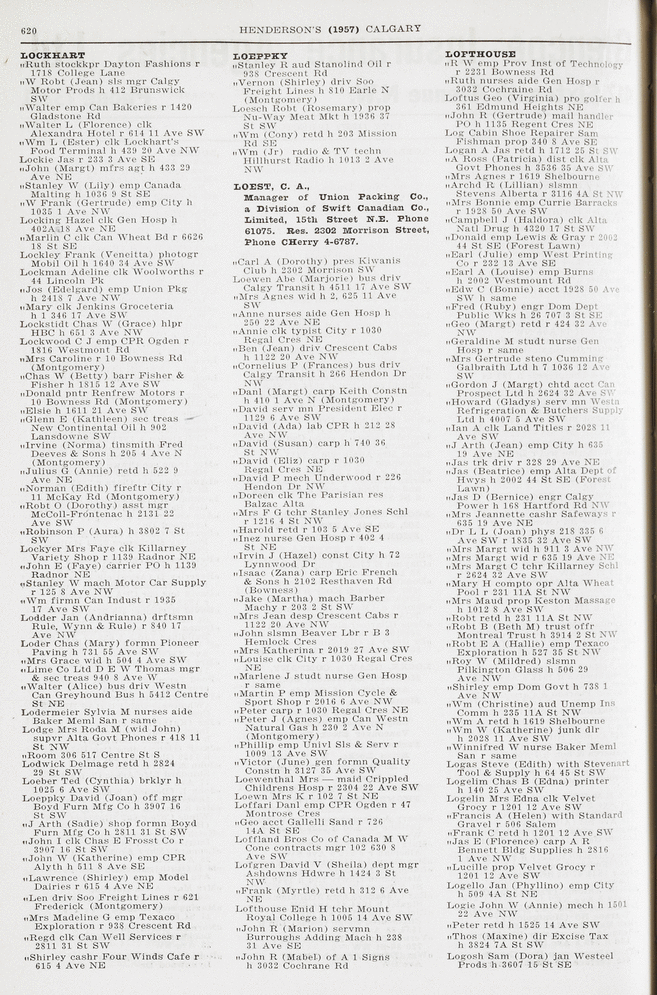 620
HENDERSON'S (1957) CALGARY
LOCKHART
„Ruth stockkpr Dayton Fashions r
1718 College Lane
„W Robt (Jean) sls mgr Calgy
Motor Prods h 412 Brunswick
SW
„Walter emp Can Bakeries r 1420
Gladstone Rd
„Walter L (Florence) clk
Alexandra Hotel r 614 11 Ave SW
„Wm L (Ester) clk Lockhart's
Food Terminal h 439 20 Ave NW
Lockie Jas r 233 3 Ave SE
„John (Margt) mfrs agt h 433 29
Ave NE
„Stanley W (Lily) emp Canada
Malting h 1036 9 St SE
„W Frank (Gertrude) emp City h
1035 1 Ave NW
Locking Hazel clk Gen Hosp h
402A 18 Ave NE
„Marlin C clk Can Wheat Bd r 6626
18 St SE
Lockley Frank (Veneitta) photogr
Mobil Oil h 1640 34 Ave SW
Lockman Adeline clk Woolworths r
44 Lincoln Pk
„Jos (Edelgard) emp Union Pkg
h 2418 7 Ave NW
„Mary clk Jenkins Groceteria
h 1 346 17 Ave SW
Lockstidt Chas W (Grace) hlpr
HBC h 651 3 Ave NW
Lockwood C J emp CPR Ogden r
1816 Westmont Rd
„Mrs Caroline r 10 Bowness Rd
(Montgomery)
„Chas W (Betty) barr Fisher &
Fisher h 1815 12 Ave SW
„Donald pntr Renfrew Motors r
10 Bowness Rd (Montgomery)
„Elsie h 1611 21 Ave SW
„Glenn E (Kathleen) sec treas
New Continental Oil h 902
Lansdowne SW
„Irvine (Norma) tinsmith Fred
Deeves & Sons h 205 4 Ave N
(Montgomery)
„Julius G (Annie) retd h 522 9
Ave NE
„Norman (Edith) fireftr City r
11 McKay Rd (Montgomery)
„Robt O (Dorothy) asst mgr
McColl-Frontenac h 2131 22
Ave SW
„Robinson P (Aura) h 3802 7 St
SW
Lockyer Mrs Faye clk Killarney
Variety Shop r 1139 Radnor NE
„John E (Faye) carrier PO h 1139
Radnor NE
„Stanley W mach Motor Car Supply
r 125 8 Ave NW
„Wm firmn Can Indust r 1935
17 Ave SW
Lodder Jan (Andrianna) drftsmn
Rule, Wynn & Rule) r 840 17
Ave NW
Loder Chas (Mary) formn Pioneer
Paving h 731 55 Ave SW
„Mrs Grace wid h 504 4 Ave SW
„Lime Co Ltd D E W Thomas mgr
& sec treas 940 8 Ave W
„Walter (Alice) bus driv Westn
Can Greyhound Bus h 5412 Centre
St NE
Lodermeier Sylvia M nurses aide
Baker Meml San r same
Lodge Mrs Roda M (wid John)
supvr Alta Govt Phones r 418 11
St NW
„Room 306 517 Centre St S
Lodwick Delmage retd h 2824
29 St SW
Loeber Ted (Cynthia) brklyr h
1025 6 Ave SW
Loeppky David (Joan) off mgr
Boyd Furn Mfg Co h 3907 16
St SW
„J Arth (Sadie) shop formn Boyd
Furn Mfg Co h 2811 31 St SW
„John I clk Chas E Frosst Co r
3907 16 St SW
„John W (Katherine) emp CPR
Alyth h 511 8 Ave SE
„Lawrence (Shirley) emp Model
Dairies r 615 4 Ave NE
„Len driv Soo Freight Lines r 621
Frederick (Montgomery)
„Mrs Madeline G emp Texaco
Exploration r 938 Crescent Rd
„Regd clk Can Well Services r
2811 31 St SW
„Shirley cashr Four Winds Cafe r
615 4 Ave NE
LOEPPKY
„Stanley R aud Stanolind Oil r
938 Crescent Rd
„Vernon (Shirley) driv Soo
Freight Lines h 810 Earle N
(Montgomery)
Loesch Robt (Rosemary) prop
Nu-Way Meat Mkt h 1936 37
St SW
„Wm (Cony) retd h 203 Mission
Rd SE
„Wm (Jr) radio & TV techn
Hillhurst Radio h 1013 2 Ave
NW
LOEST, C. A.,
Manager of Union Packing Co.,
a Division of Swift Canadian Co.,
Limited, 15th Street N.E. Phone
61075. Res. 2302 Morrison Street,
Phone CHerry 4-6787.
„Carl A (Dorothy) pres Kiwanis
Club h 2302 Morrison SW
Loewen Abe (Marjorie) bus driv
Calgy Transit h 4511 17 Ave SW
„Mrs Agnes wid h 2, 625 11 Ave
SW
„Anne nurses aide Gen Hosp h
250 22 Ave NE
„Annie clk typist City r 1030
Regal Cres NE
„Ben (Jean) driv Crescent Cabs
h 1122 20 Ave NW
„Cornelius P (Frances) bus driv
Calgy Transit h 266 Hendon Dr
NW
„Danl (Margt) carp Keith Constn
h 410 1 Ave N (Montgomery)
„David serv mn President Elec r
1129 6 Ave SW
„David (Ada) lab CPR h 212 28
Ave NW
„David (Susan) carp h 740 36
St NW
„David (Eliz) carp r 1030
Regal Cres NE
„David P mech Underwood r 226
Hendon Dr NW
„Doreen clk The Parisian res
Balzac Alta
„Mrs F G tchr Stanley Jones Schl
r 1216 4 St NW
„Harold retd r 103 5 Ave SE
„Inez nurse Gen Hosp r 402 4
St NE
„Irvin J (Hazel) const City h 72
Lynnwood Dr
„Isaac (Zana) carp Eric French
& Sons h 2102 Resthaven Rd
(Bowness)
„Jake (Martha) mach Barber
Machy r 203 2 St SW
„Mrs Jean desp Crescent Cabs r
1122 20 Ave NW
„John slsmn Beaver Lbr r B 3
Hemlock Cres
„Mrs Katherina r 2019 27 Ave SW
„Louise clk City r 1030 Regal Cres
NE
„Marlene J studt nurse Gen Hosp
r same
„Martin P emp Mission Cycle &
Sport Shop r 2016 6 Ave NW
„Peter carp r 1030 Regal Cres NE
„Peter J (Agnes) emp Can Westn
Natural Gas h 230 2 Ave N
(Montgomery)
„Phillip emp Univl Sls & Serv r
1009 13 Ave SW
„Victor (June) gen formn Quality
Constn h 3127 35 Ave SW
Loewenthal Mrs — maid Crippled
Childrens Hosp r 2304 22 Ave SW
Loewn Mrs K r 102 7 St NE
Loffari Danl emp CPR Ogden r 47
Montrose Cres
„Geo acct Gallelli Sand r 726
14A St SE
Loffland Bros Co of Canada M W
Cone contracts mgr 102 630 8
Ave SW
Lofgren David V (Sheila) dept mgr
Ashdowns Hdwre h 1424 3 St
NW
„Frank (Myrtle) retd h 312 6 Ave
NE
Lofthouse Enid H tchr Mount
Royal College h 1005 14 Ave SW
„John R (Marion) servmn
Burroughs Adding Mach h 238
31 Ave SE
„John R (Mabel) of A 1 Signs
h 3032 Cochrane Rd
LOFTHOUSE
„R W emp Prov Inst of Technology
r 2231 Bowness Rd
„Ruth nurses aide Gen Hosp r
3032 Cochraine Rd
Loftus Geo (Virginia) pro golfer h
361 Edmund Heights NE
„John R (Gertrude) mail handler
PO h 1135 Regent Cres NE
Log Cabin Shoe Repairer Sam
Fishman prop 340 8 Ave SE
Logan A Jas retd h 1712 25 St SW
„A Ross (Patricia) dist clk Alta
Govt Phones h 3536 35 Ave SW
„Mrs Agnes r 1619 Shelbourne
„Archd R (Lillian) slsmn
Stevens Alberta r 3116 4A St NW
„Mrs Bonnie emp Currie Barracks
r 1928 50 Ave SW
„Campbell J (Haldora) clk Alta
Natl Drug h 4320 17 St SW
„Donald emp Lewis & Gray r 2002
44 St SE (Forest Lawn)
„Earl (Julie) emp West Printing
Co r 232 13 Ave SE
„Earl A (Louise) emp Burns
h 2002 Westmount Rd
„Edw C (Bonnie) acct 1928 50 Ave
SW h same
„Fred (Ruby) engr Dom Dept
Public Wks h 26 707 3 St SE
„Geo (Margt) retd r 424 32 Ave
NW
„Geraldine M studt nurse Gen
Hosp r same
„Mrs Gertrude steno Cumming
Galbraith Ltd h 7 1036 12 Ave
SW
„Gordon J (Margt) chtd acct Can
Prospect Ltd h 2624 32 Ave SW
„Howard (Gladys) serv mn Westn
Refrigeration & Butchers Supply
Ltd h 4007 5 Ave SW
„Ian A clk Land Titles r 2028 11
Ave SW
„J Arth (Jean) emp City h 635
19 Ave NE
„Jas trk driv r 328 29 Ave NE
„Jas (Beatrice) emp Alta Dept of
Hwys h 2002 44 St SE (Forest
Lawn)
„Jas D (Bernice) engr Calgy
Power h 168 Hartford Rd NW
„Mrs Jeannette cashr Safeways r
635 19 Ave NE
„Dr L L (Joan) phys 218 335 6
Ave SW r 1835 32 Ave SW
„Mrs Margt wid h 911 3 Ave NW
„Mrs Margt wid r 635 19 Ave NE
„Mrs Margt C tchr Killarney Schl
r 2624 32 Ave SW
„Mary H compto opr Alta Wheat
Pool r 231 11A St NW
„Mrs Maud prop Keston Massage
h 1012 8 Ave SW
„Robt retd h 231 11A St NW
„Robt B (Beth M) trust offr
Montreal Trust h 3914 2 St NW
„Robt E A (Hallie) emp Texaco
Exploration h 527 35 St NW
„Roy W (Mildred) slsmn
Pilkington Glass h 506 29
Ave NW
„Shirley emp Dom Govt h 738 1
Ave NW
„Wm (Christine) aud Unemp Ins
Comm h 235 11A St NW
„Wm A retd h 1619 Shelbourne
„Wm W (Katherine) junk dlr
h 2028 11 Ave SW
„Winnifred W nurse Baker Meml
San r same
Logas Steve (Edith) with Stevenart
Tool & Supply h 64 45 St SW
Logelim Chas B (Edna) printer
h 140 25 Ave SW
Logelin Mrs Edna clk Velvet
Grocy r 1201 12 Ave SW
„Francis A (Helen) with Standard
Gravel r 506 Salem
„Frank C retd h 1201 12 Ave SW
„Jas E (Florence) carp A R
Bennett Bldg Supplies h 2816
1 Ave NW
„Lucille prop Velvet Grocy r
1201 12 Ave SW
Logello Jan (Phyllino) emp City
h 509 4A St NE
Logie John W (Annie) mech h 1501
22 Ave NW
„Peter retd h 1525 14 Ave SW
„Thos (Maxine) dir Excise Tax
h 3824 7A St SW
Logosh Sam (Dora) jan Westeel
Prods h 3607 15 St SE